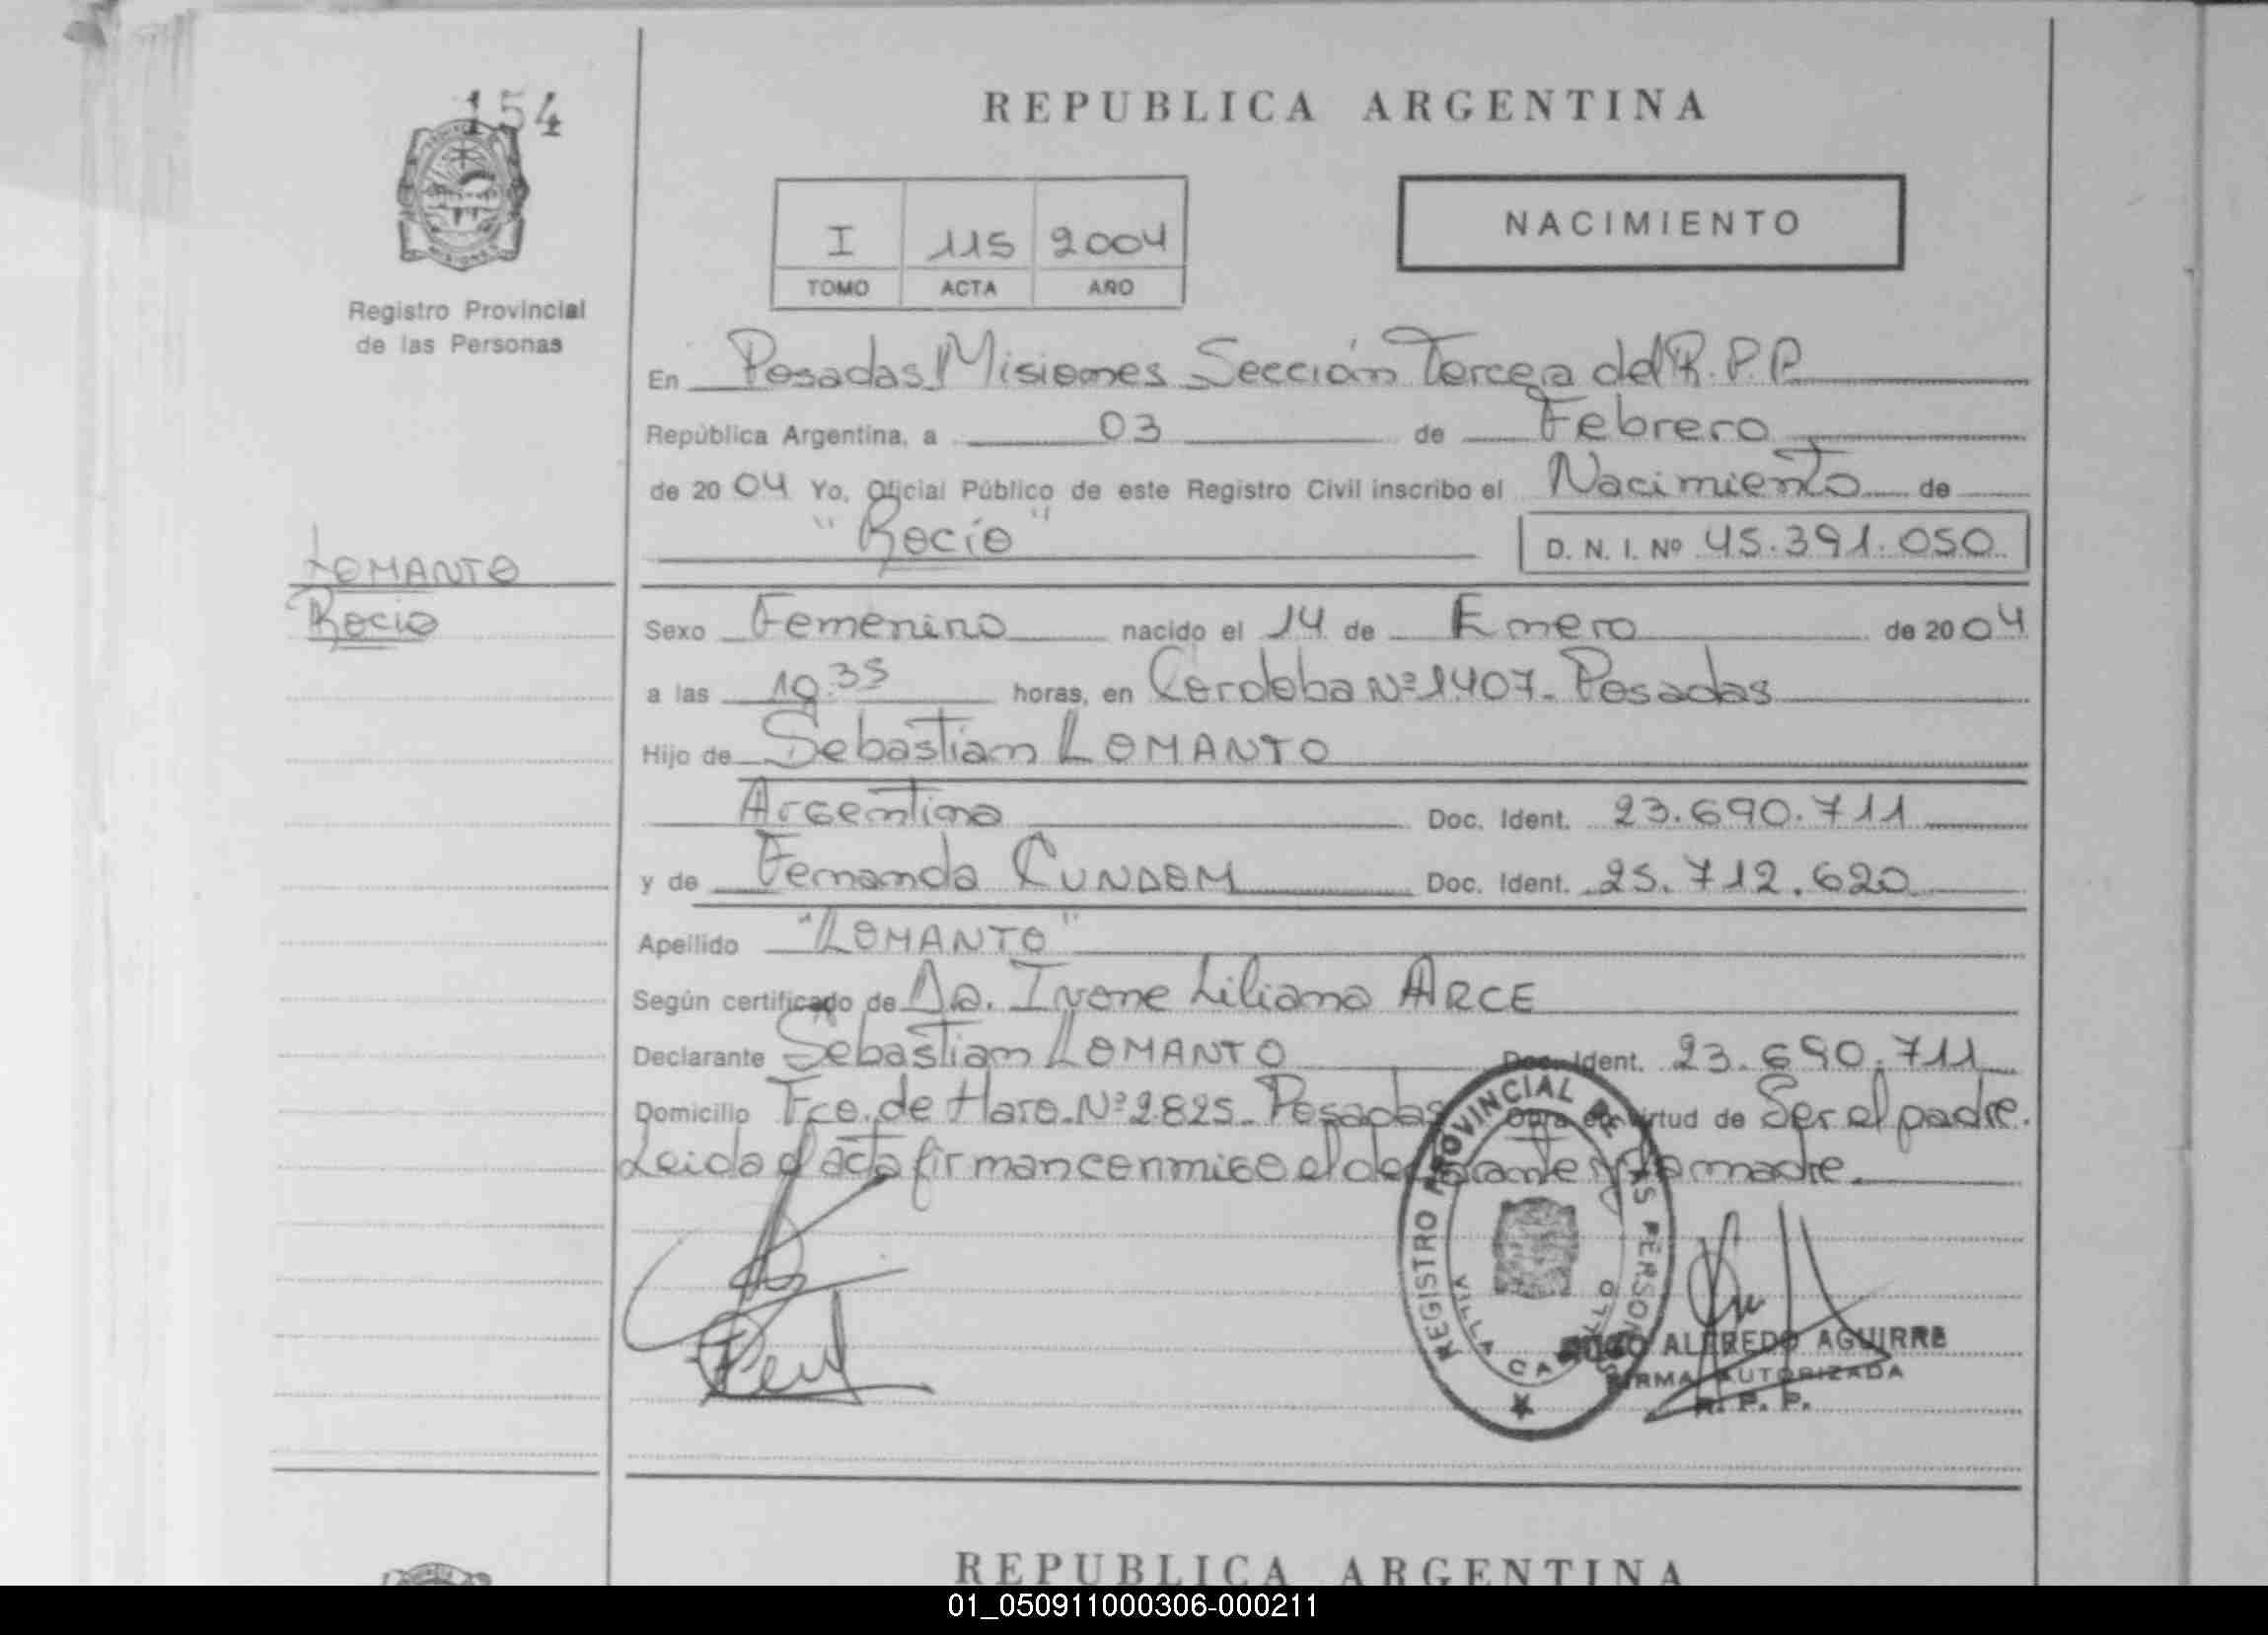 154
REPUBLICA ARGENTINA
I 115 2004
TOMO ACTA AÑO
NACIMIENTO
Registro Provincial
de las Personas
En Posadas Misiones Sección Tercera del R.P.P.
República Argentina, a 03 de Febrero
de 2004 Yo, Oficial Público de este Registro Civil inscribo el Nacimiento de
"Rocío" D. N. I. Nº 45.391.050
LOMANTO
Rocio
Sexo Femenino nacido el 14 de Enero de 2004
a las 19.35 horas, en Cordoba Nº 1407- Posadas
Hijo de Sebastian LOMANTO
Argentina Doc. Ident. 23.690.711
y de Fernanda CUNDOM Doc. Ident. 25.712.620
Apellido "LOMANTO"
Según certificado de Da. Ivone Liliana ARCE
Declarante Sebastian LOMANTO Doc. Ident. 23.690.711
Domicilio Fco. de Haro Nº 2825- Posadas Obra en virtud de Ser el padre.
Leida el acta firman conmigo el declarante y la madre.
REGISTRO PROVINCIAL DE LAS PERSONAS
VILLA CABELLO
ALFREDO AGUIRRE
FIRMA AUTORIZADA
R. P. P.
REPUBLICA ARGENTINA
01_050911000306-000211